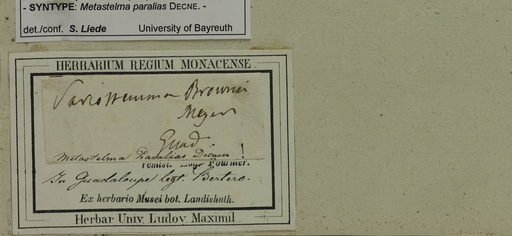 - SYNTYPE: Metastelma paralias DECNE. -
det./conf. S. Liede University of Bayreuth
HERBARIUM REGIUM MONACENSE
Brownei
Meyer
Guad.
Metastelma Paralias Decsne !
Fournier.
In Guadaloupe legt. Bertero.
Ex herbario Musei bot. Landishuth.
Herbar Univ. Ludov. Maximil